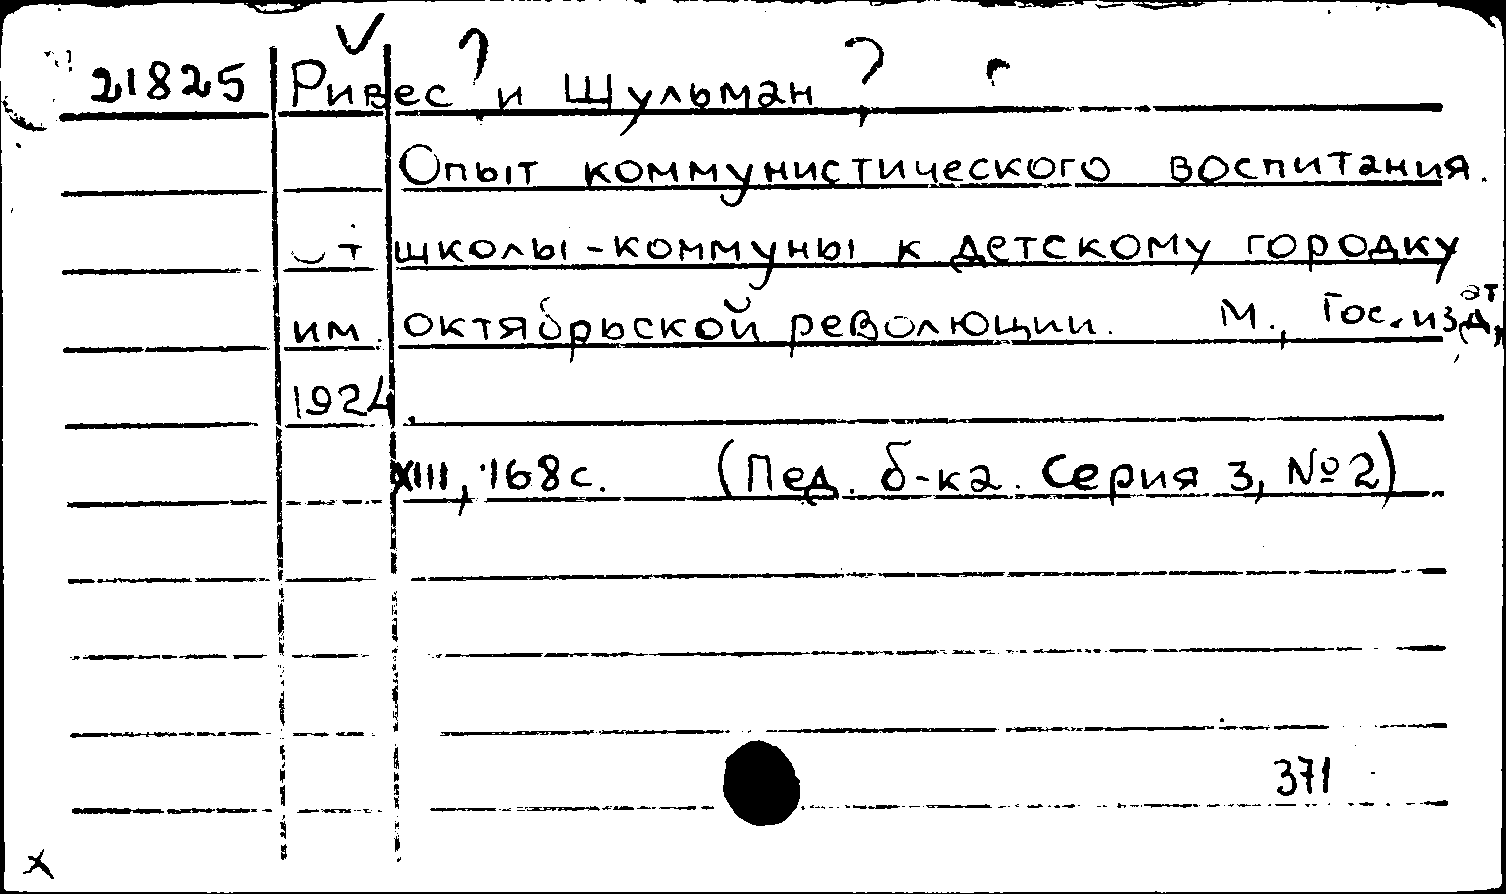 21825 Ривес? и Шульман?
Опыт коммунистического воспитания.
От школы-коммуны к детскому городку
им. октябрьской революции. М., Гос. издат,
1924.
XIII, 168с. (Пед. б-ка. Серия 3, №2)
371
x